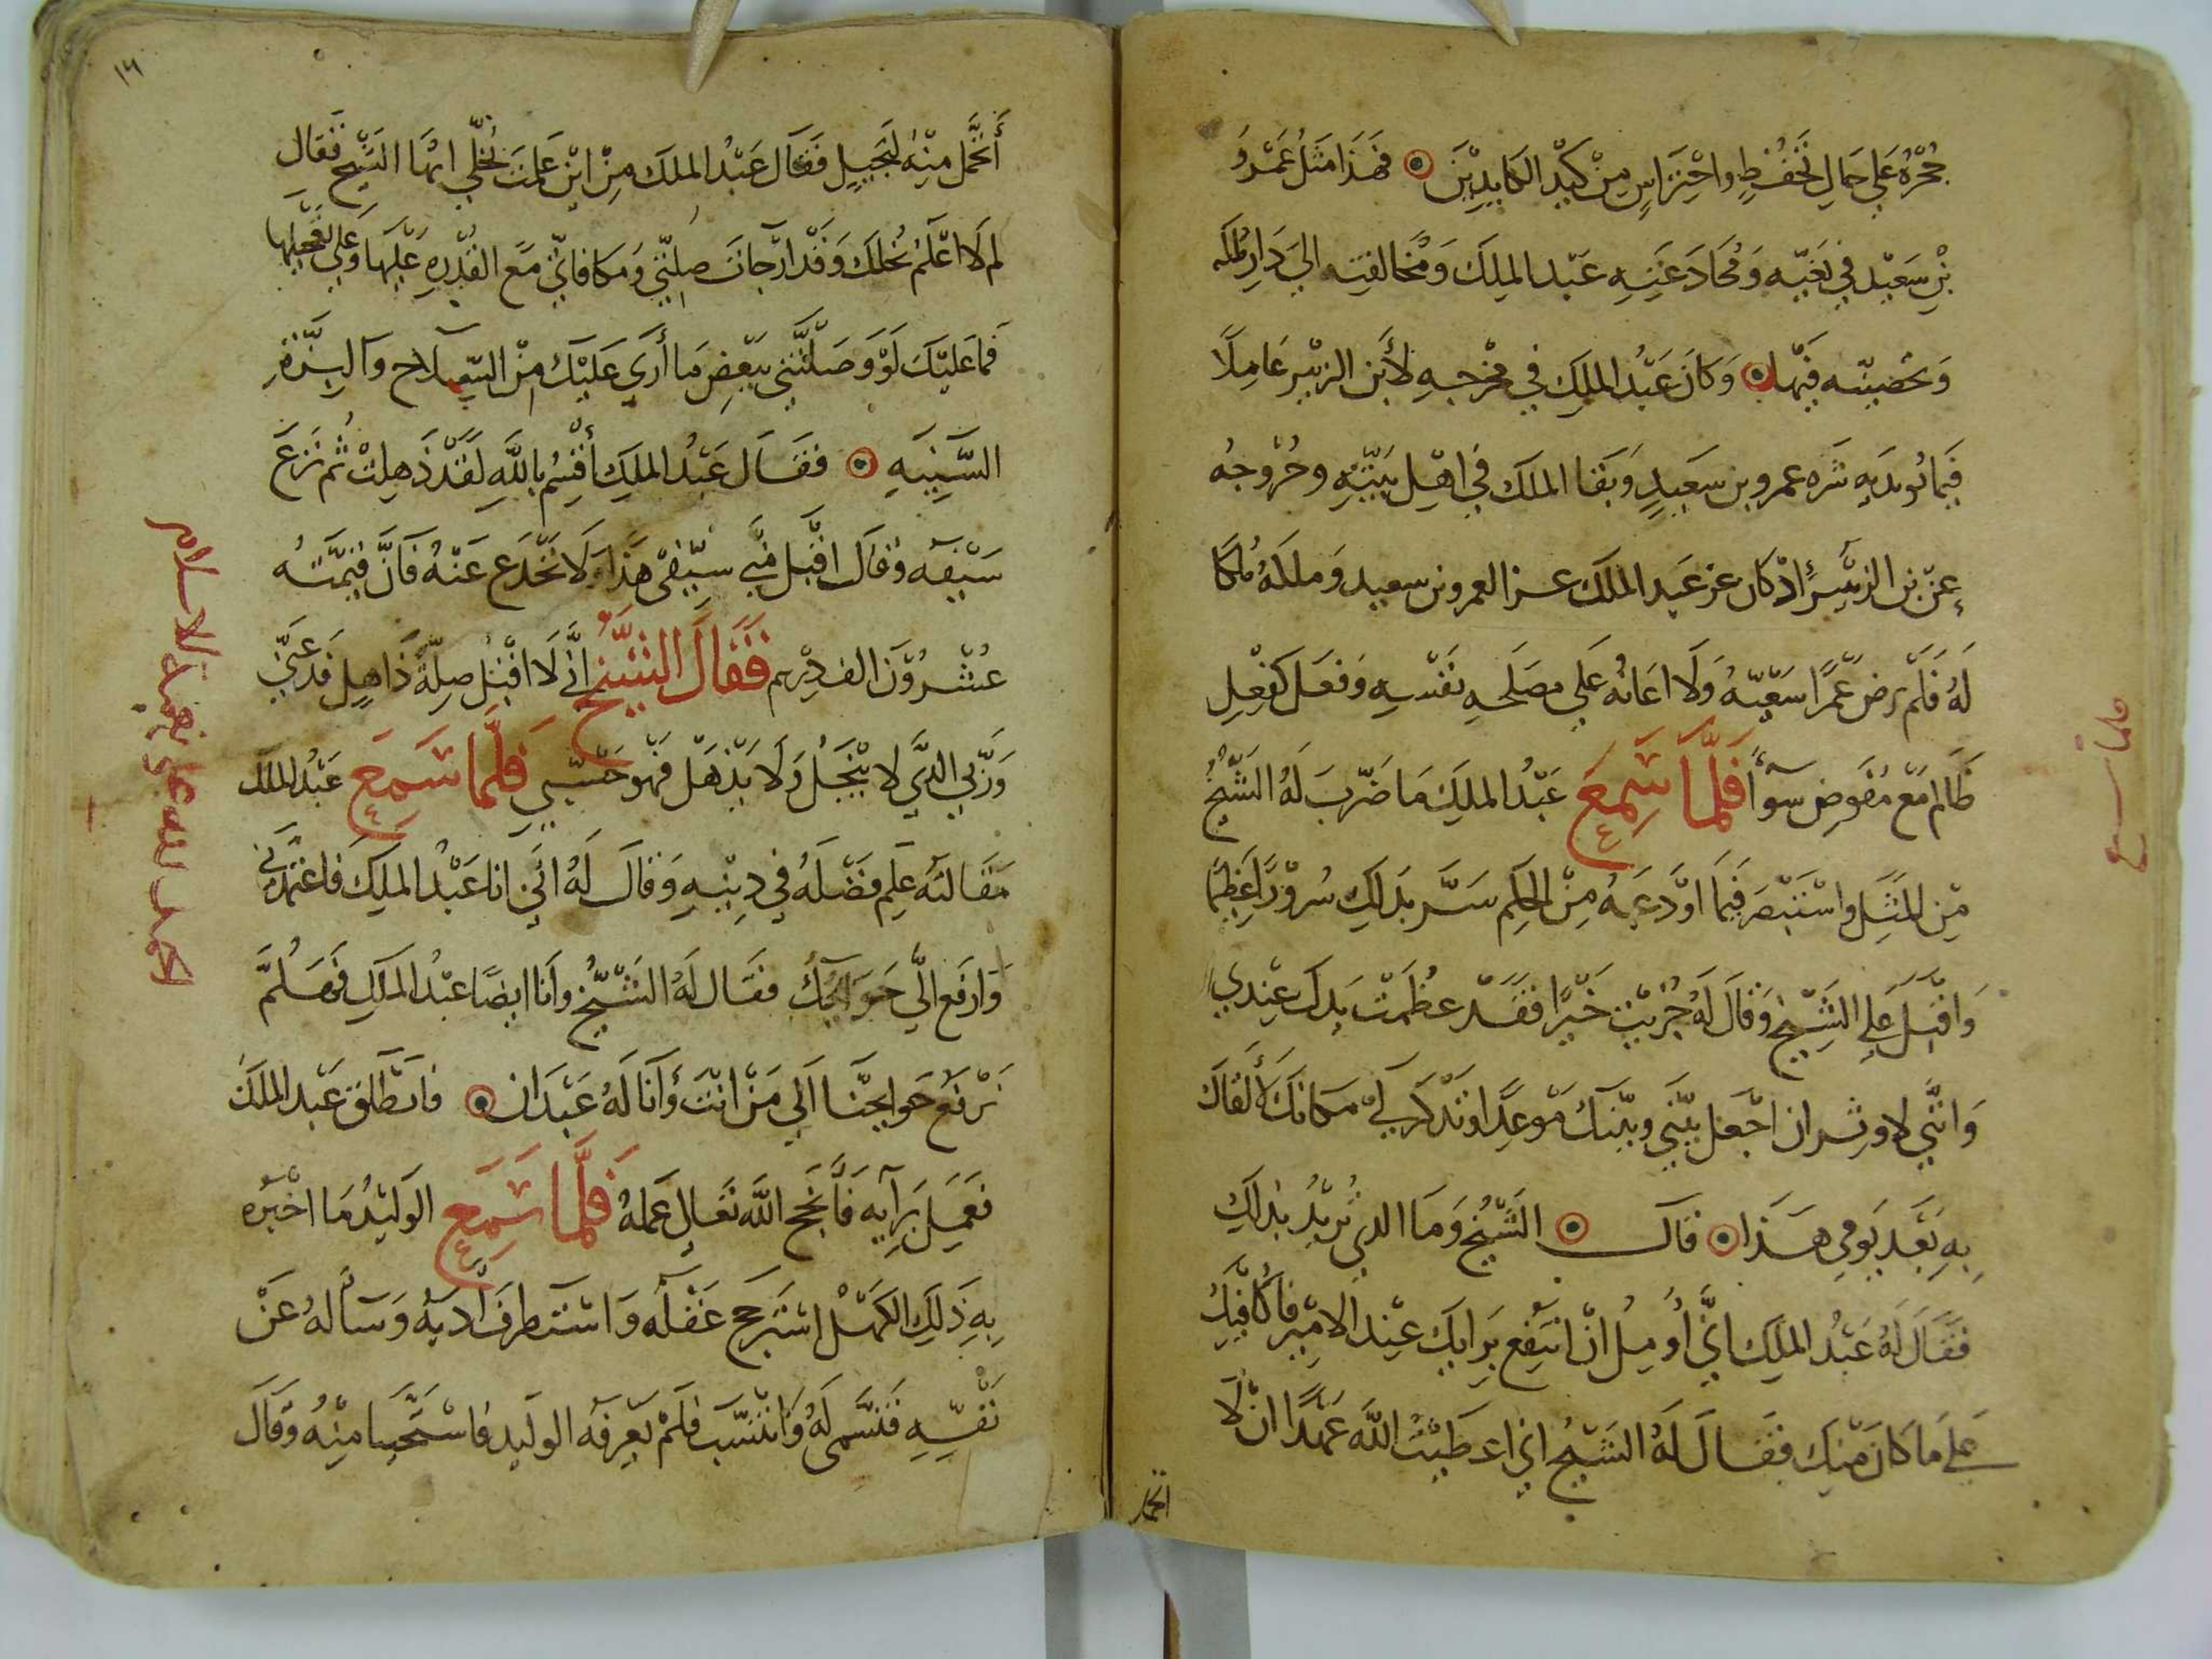 جحره على حال تحفظ واحتراس من كيد الكايدين فهذا مثل عمرو
بن سعيد في بغيه ومخادعته عبد الملك ومخالفته الى دار ملكه
وتحصينه فيها وكان عبد الملك في مخرجه لابن الزبير عاملا
فيما عمرو بن سعيد وبقا الملك في اهل بيته وخروجه
عن بن الزبير اذ كان عز عبد الملك عز العمرو بن سعيد وملكه ملكا
له فلم يرض عمرا سعيه ولا اعانه على مصلحه نفسه وفعل كفعل
ظالم مع مفوض سوا فلما سمع عبد الملك ما ضرب له الشيخ
من المثل واستبصر فيما اودعه من الحكم سر بذلك سرورا عظيما
واقبل على الشيخ وقال له جزيت خيرا فقد عظمت يدك عندي
واني لاوثر ان اجعل بيني وبينك موعدا وتذكر لي مكانك لالقاك
به بعد يومي هذا قال الشيخ وما الذي تريد بذلك
فقال له عبد الملك اني اومل ان انتفع برايك عند الامير فاكافيك
على ما كان منك فقال له الشيخ اني اعطيت الله عهدا ان لا
اتحمل
فلما سمع
١٦
أتحمل منه لبخيل فقال عبد الملك من اين علمت بخلي ايها الشيخ فقال
لم لا اعلم بخلك وقد ارجات صلتي ومكافاتي مع القدره عليها وعلى تعجيلها
فما عليك لو وصلتني ببعض ما أرى عليك من السلاح والبزة
السنيه فقال عبد الملك أقسم بالله لقد ذهلت ثم نزع
سيفه وقال اقبل مني سيفي هذا ولا تخدع عنه فان قيمته
عشرون الف درهم فقال الشيخ اني لا اقبل صلة ذاهل فدعني
وربي الذي لا يبخل ولا يذهل فهو حسبي فلما سمع عبد الملك
مقالته علم فضله في دينه وقال له اني انا عبد الملك فاعتمدني
وارفع الي حوايجك فقال له الشيخ وانا ايضا عبد الملك فهلم
نرفع حوايجنا الى من انت وانا له عبدان فانطلق عبد الملك
فعمل برايه فانجح الله تعالى عمله فلما سمع الوليد ما اخبره
به ذلك الكهل استرجح عقله واستطرف ادبه وساله عن
نفسه فتسمى له وانتسب فلم يعرفه الوليد فاستحيا منه وقال
الحمد لله على نعمة الاسلام